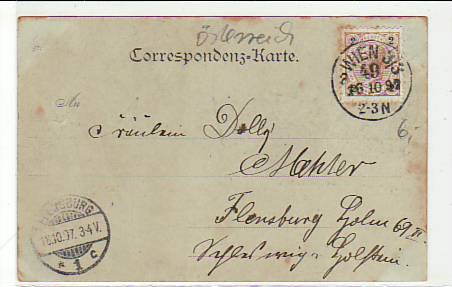 Österreich
Correspondenz-Karte.
2 2
WIEN 3/3
49
16.10.97
2-3 N
An
Fräulein Dolly
Mehler
Flensburg Holm 69 III.
Schleswig-Holstein.
6.
FLENSBURG
18.10.97. 3-4 V.
* 1 c